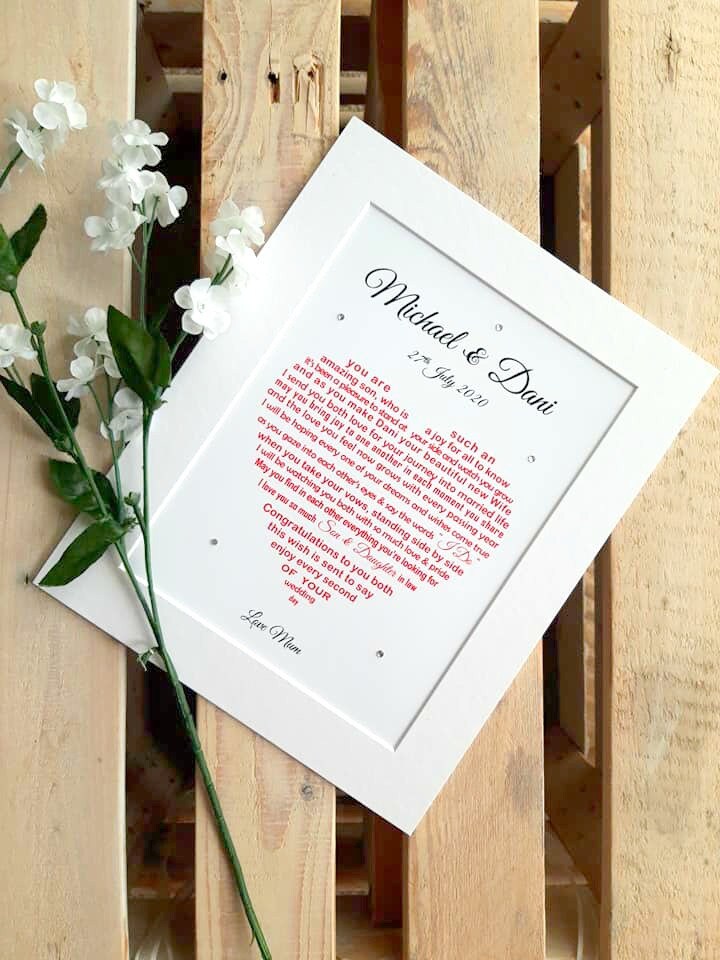 Michael & Dani
27th July 2020
you are such an
amazing son, who is a joy for all to know
It's been a pleasure to stand at your side and watch you grow
and as you make Dani your beautiful new Wife
I send you both love for your journey into married life
may you bring joy to one another in each moment you share
and the love you feel now grows with every passing year
I will be hoping every one of your dreams and wishes come true
as you gaze into each other's eyes & say the words "I Do"
when you take your vows, standing side by side
I will be watching you both with so much love & pride
May you find in each other everything you're looking for
I love you so much Son & Daughter in law
Congratulations to you both
this wish is sent to say
enjoy every second
OF YOUR
wedding
day
Love Mum